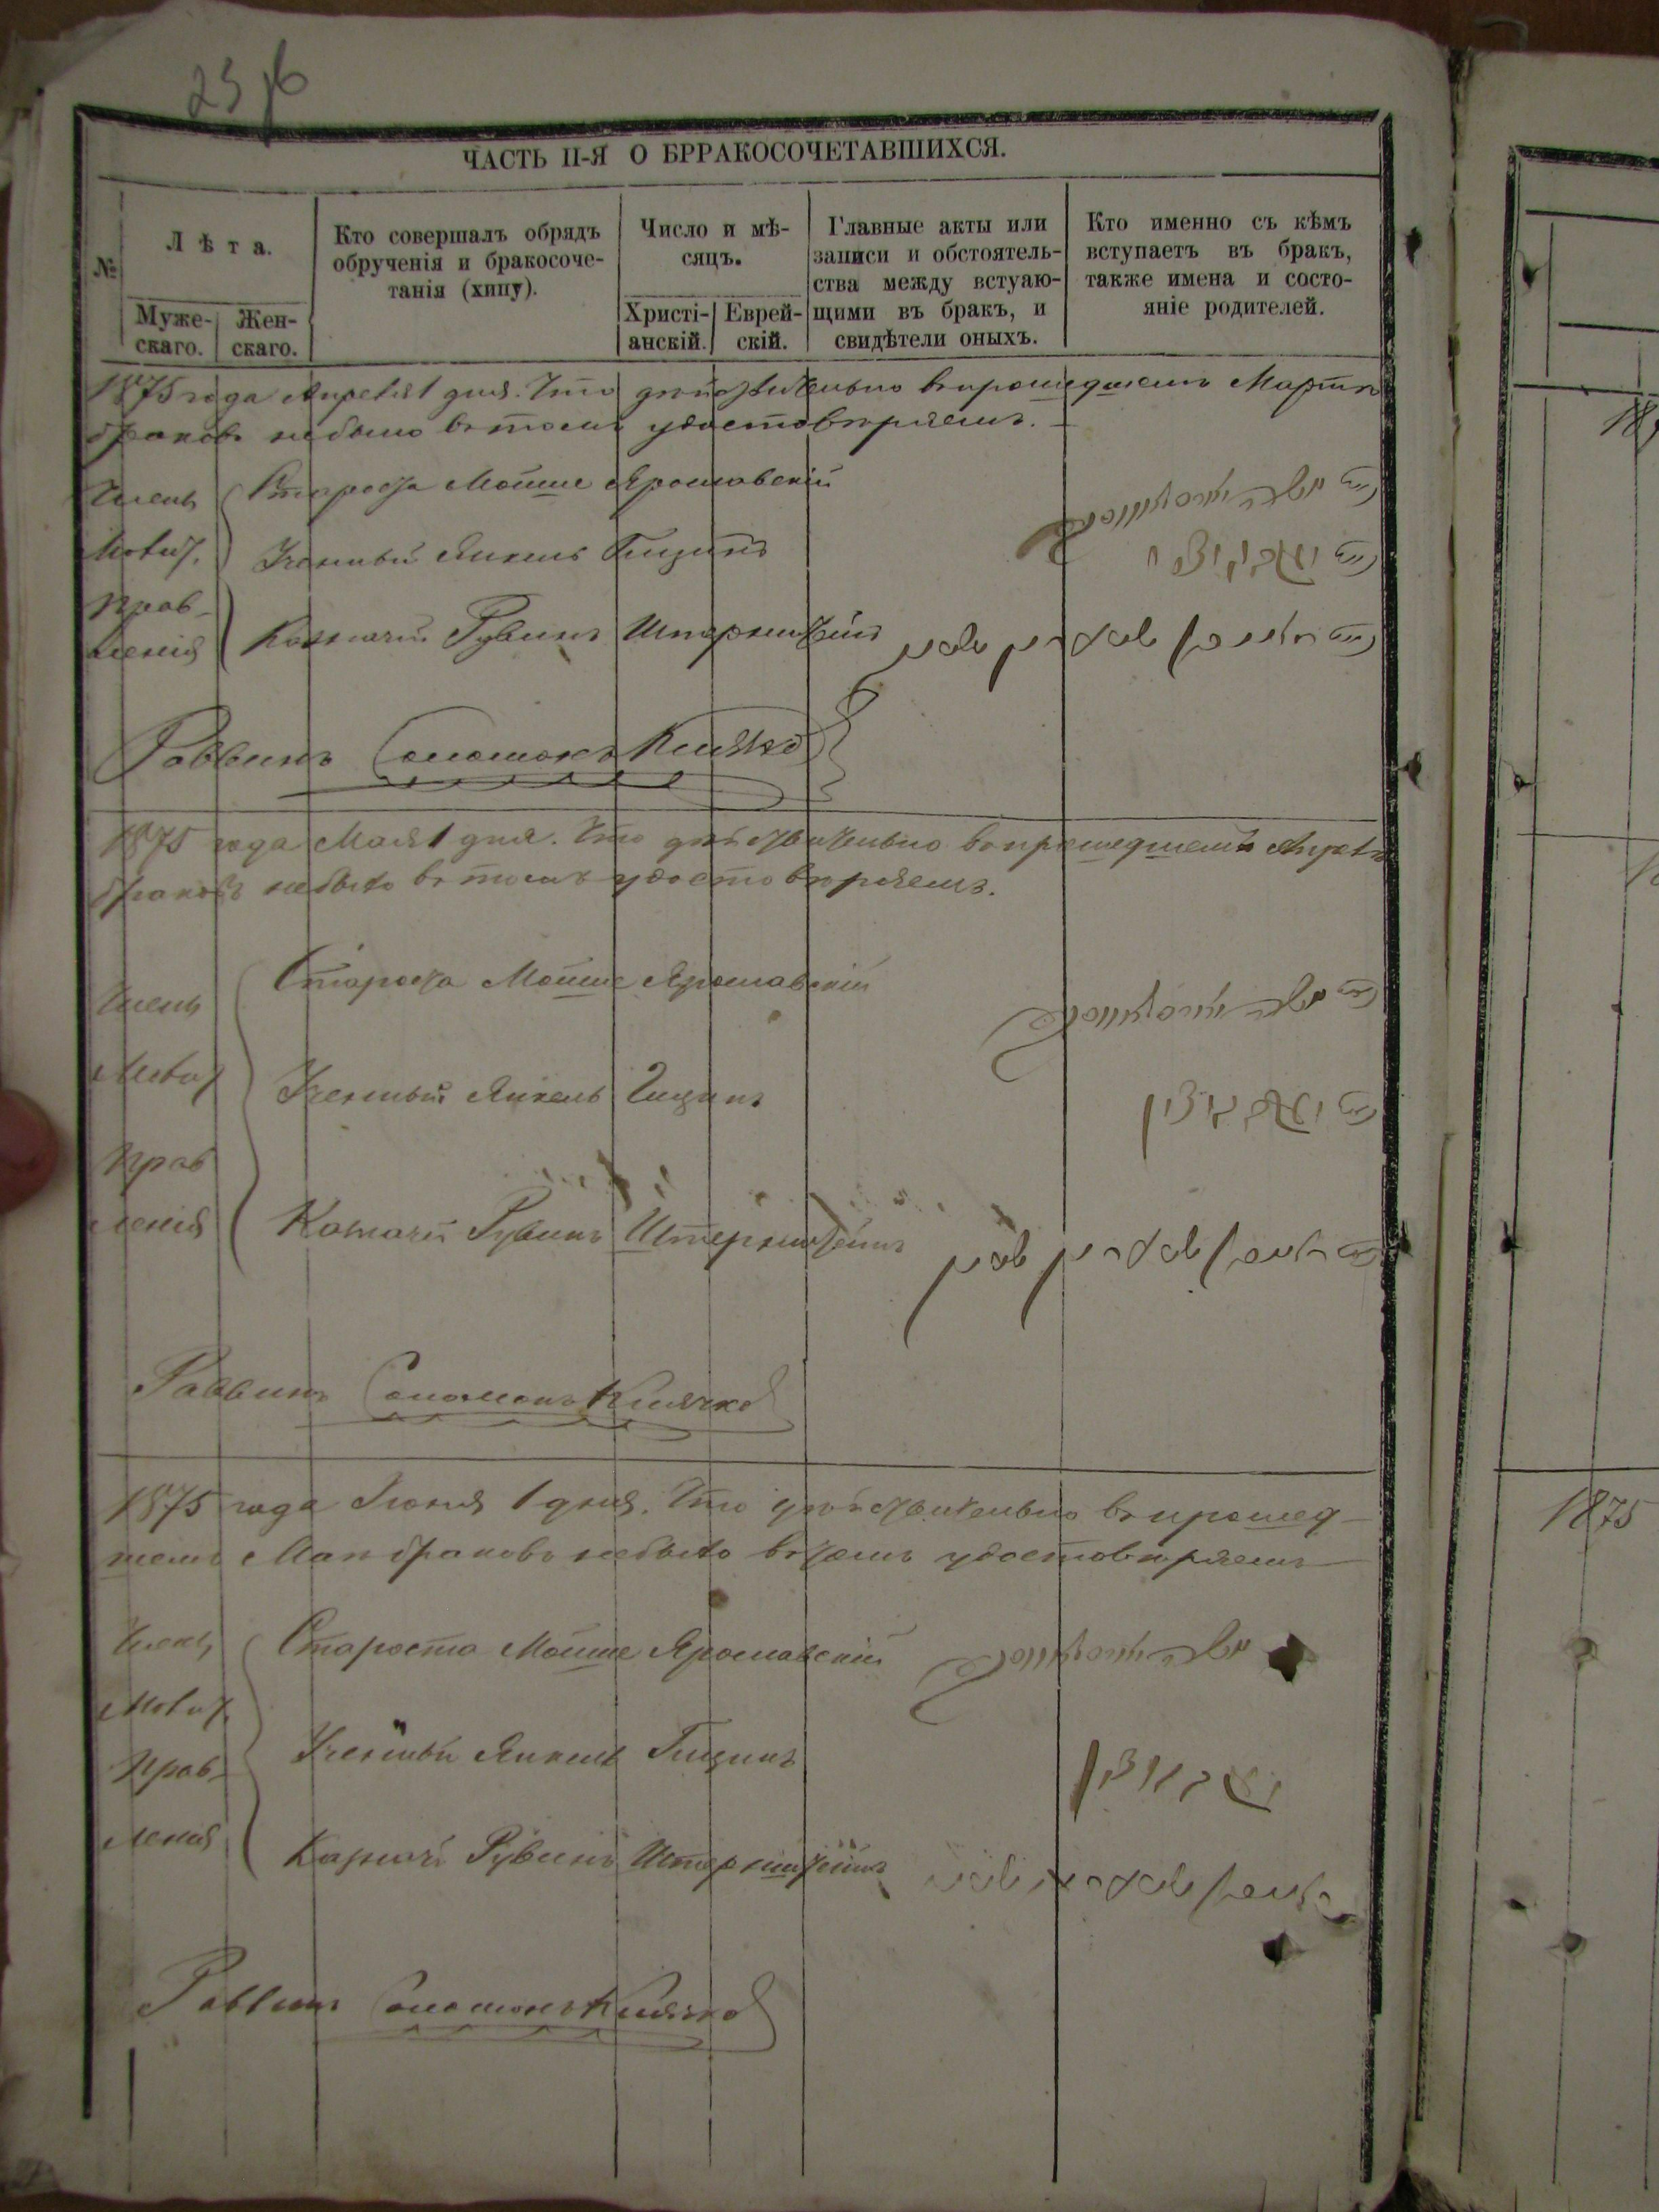 25 об
ЧАСТЬ II-Я О БРРАКОСОЧЕТАВШИХСЯ.
№
Лѣта.
Муже-
скаго.
Жен-
скаго.
Кто совершалъ обрядъ
обрученія и бракосоче-
танія (хипу).
Число и мѣ-
сяцъ.
Христі-
анскій.
Еврей-
скій.
Главные акты или
записи и обстоятель-
ства между встуаю-
щими въ бракъ, и
свидѣтели оныхъ.
Кто именно съ кѣмъ
вступаетъ въ бракъ,
также имена и состо-
яніе родителей.
1875 года Апреля 1 дня. Что дѣйствительно впрошедшемъ Мартѣ
браковъ небыло втомъ удостовѣряемъ.
Члены Староста Мойше Ярославскій
Молит. Ученый Янкель Гицинъ
Прав-
ленія Казначей Рувинъ Штернштейнъ
Раввинъ Соломонъ Клячко
1875 года Мая 1 дня. Что дѣйствительно впрошедшемъ Апрелѣ
браковъ небыло втомъ удостовѣряемъ.
Члены Староста Мойше Ярославскій
Молит Ученый Янкель Гицинъ
Прав
ленія Казначей Рувинъ Штернштейнъ
Раввинъ Соломонъ Клячко
1875 года Іюня 1 дня. Что дѣйствительно впрошед-
шемъ Маѣ браковъ небыло втомъ удостовѣряемъ
Члены Староста Мойше Ярославскій
Молит. Ученый Янкель Гицинъ
Прав-
ленія Казначей Рувинъ Штернштейнъ
Раввинъ Соломонъ Клячко
1875